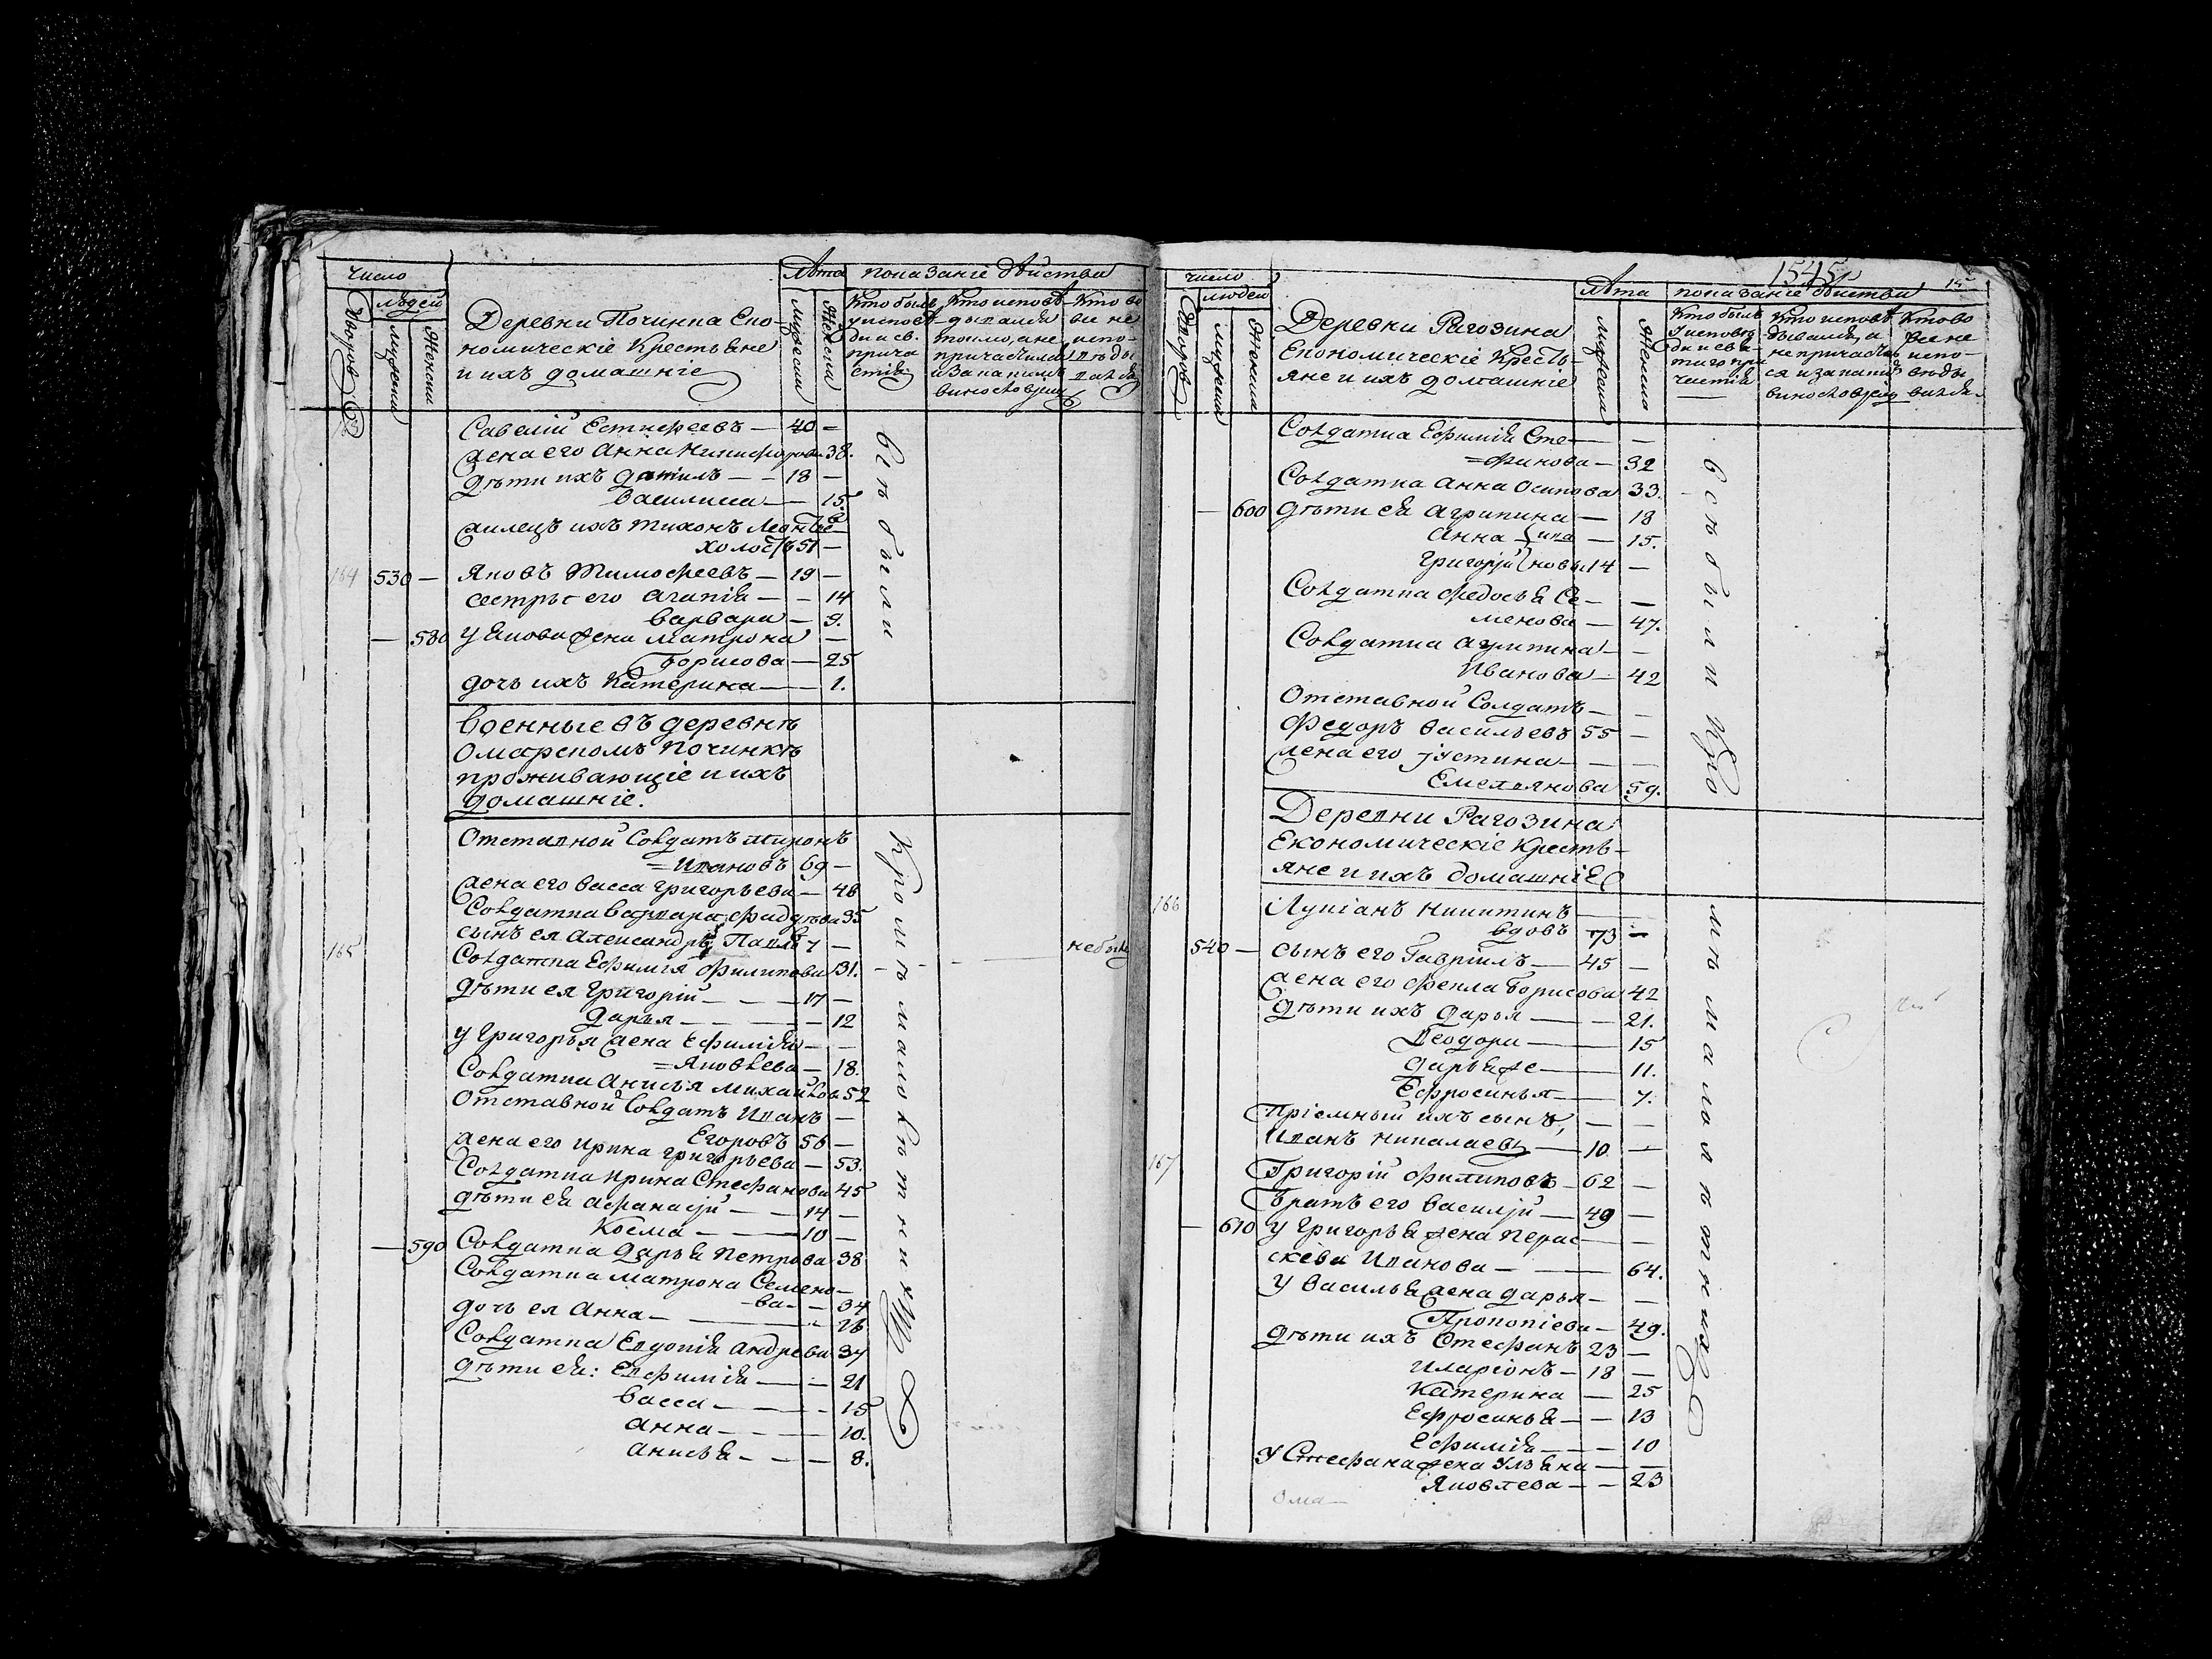 число
людей
Дворовъ
Мужеска
Женска
Деревни Починка Еко-
номическіе Крестьяне
и ихъ домашніе
Лѣта
Мужеска
Женска
показаніе дѣйства
Кто былъ
у испов-
ди и св.
прича
стія
Кто исповѣ-
дывался
токмо, а не
причастился
и за какимъ
винословіемъ
Кто во
все не
испо-
вѣды
вался
Савелій Естифеевъ — 40 —
жена его Анна Никифорова 38.
дѣти ихъ — — 18 —
Василиса — 15.
жилецъ ихъ Тихонъ
холостъ 51 —
164 530 — Яковъ Тимофеевъ — 19 —
сестры его Агапія — — 14
Варвара — 9.
— 580 у Якова жена Матрона —
Борисова — 25
дочь ихъ Катерина — 1.
всѣ были
Военные въ деревнѣ
починкѣ
проживающіе и ихъ
домашніе.
Отставной Солдатъ Миронъ
=Ивановъ 69 —
жена его Васса Григорьева — 46
Солдатка Варвара Фаддѣва 35
сынъ ея Александръ 7 —
165 Солдатка Ефимія Филипова 31. — — не былъ
дѣти ея Григорій — — — 17 —
Дарья — — — — 12
у Григорья жена Ефимія — —
=Яковлева — 18.
Солдатка Анисья Михайлов 52
Отставной Солдатъ Иванъ —
Егоровъ 56 —
жена его Ирина Григорьева — 53.
Солдатка Ирина Стефанова 45
дѣти ея Афанасій — — 14 —
Косма — — 10 —
— 590 Солдатка Дарья Петрова 38
Солдатка Матрона Семено-
-ва — — 34
дочь ея Анна — — 16
Солдатка Евдокія Андрева 37
дѣти ея: Евфимія — — 21
Васса — — — 15
Анна — — — 10.
Анисья — — — 8.
Кромѣ малолѣтнихъ
1545
число
людей
Дворовъ
Мужеска
Женска
Деревни Рагозина
Економическіе Кресть-
яне и ихъ домашніе
Лѣта
Мужеска
Женска
показаніе дѣйства
Кто былъ
у исповѣ
ди и свя-
таго при
частія
Кто исповѣ
дывался, а
не причастил
ся и за какимъ
винословіемъ
Кто во
все не
испо-
вѣды
вался
Солдатка Ефимія Сте- —
=фанова — 32
Солдатка Анна Осипова 33.
— 600 дѣти ея Агрипина — 18
Анна — 15.
Григорій 14 —
Солдатка Федосья Се- —
менова — 47.
Солдатка Агрипина — —
Иванова — 42
Отставной Солдатъ — —
Федоръ Васильевъ 55 —
жена его Іустина — —
Емельянова 59.
всѣ были Кро
Деревни Рагозина
Економическіе Кресть-
яне и ихъ домашніе
166 Лукіанъ Никитинъ — —
вдовъ 73 —
540 — сынъ его Гавріилъ — 45 —
жена его Фекла Борисова 42
дѣти ихъ Дарья — — 21.
Феодора — 15
Дарья же — 11.
Ефросинья — 7.
Пріемный ихъ сынъ, — —
Иванъ Николаевъ — 10. —
167 Григорій Филиповъ — 62 —
Братъ его Василій — 49 —
— 610 у Григорья жена Парас — —
скева Иванова — — 64.
у Василья жена Дарья — —
Прокопіева — 49.
дѣти ихъ Стефанъ 23 —
Иларіонъ — 18 —
Катерина — 25
Ефросинья — — 13
Ефимія — — 10
у Стефана жена Ульяна — —
Яковлева — — 23
мѣ малолѣтнихъ